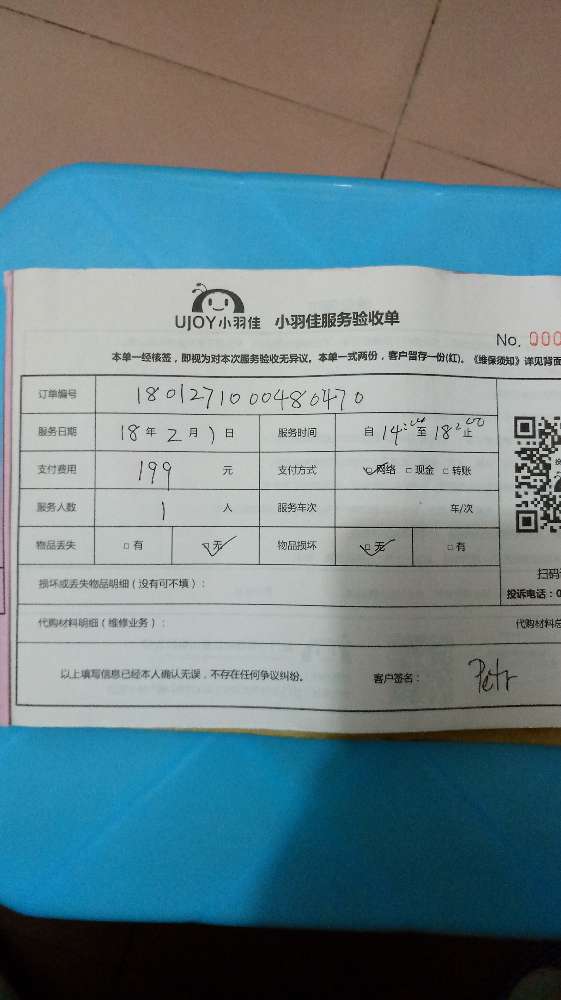 UJOY小羽佳 小羽佳服务验收单
No. 000
本单一经核签，即视为对本次服务验收无异议。本单一式两份，客户留存一份(红)。《维保须知》详见背面
订单编号 180127100480470
服务日期 18 年 2 月 1 日 服务时间 自 14:00 至 18:00 止
支付费用 199 元 支付方式 □网络 □现金 □转账
服务人数 1 人 服务车次 车/次
物品丢失 □有 □无 物品损坏 □无 □有
扫码
损坏或丢失物品明细（没有可不填）：
投诉电话：0
代购材料明细（维修业务）： 代购材料总
以上填写信息已经本人确认无误，不存在任何争议纠纷。 客户签名： Petr